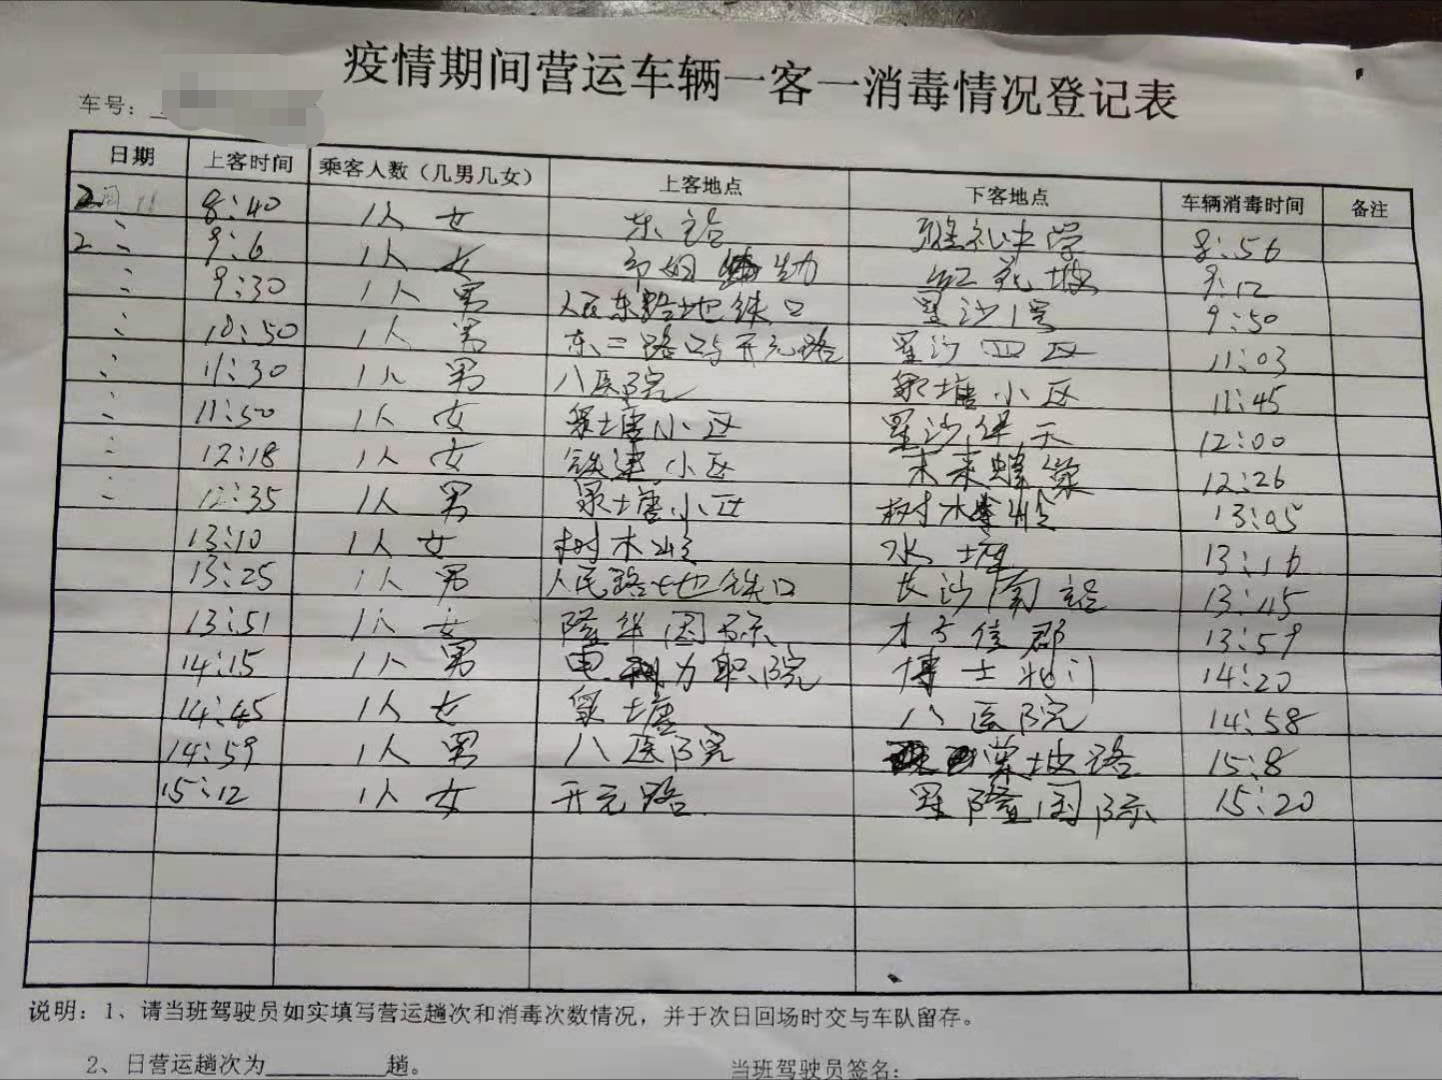 疫情期间营运车辆一客一消毒情况登记表
车号：
日期 上客时间 乘客人数（几男几女） 上客地点 下客地点 车辆消毒时间 备注
2月11 8:40 1人 女 东站 雅礼中学 8:56
2 〃 9:6 1人 女 幼 红花坡 9:12
〃 9:30 1人 男 人民东路地铁口 星沙1号 9:50
〃 10:50 1人 男 东二路与开元路 星沙四区 11:03
〃 11:30 1人 男 八医院 泉塘小区 11:45
〃 11:50 1人 女 泉塘小区 星沙 天 12:00
〃 12:18 1人 女 铁建小区 未来蜂巢 12:26
〃 12:35 1人 男 泉塘小区 树木岭 13:05
13:10 1人 女 树木岭 水塘 13:16
13:25 1人 男 人民路地铁口 长沙南站 13:45
13:51 1人 女 隆华国际 才子佳郡 13:59
14:15 1人 男 电力职院 博士 14:20
14:45 1人 女 泉塘 八医院 14:58
14:59 1人 男 八医院 路 15:8
15:12 1人 女 开元路 星隆国际 15:20
说明：1、请当班驾驶员如实填写营运趟次和消毒次数情况，并于次日回场时交与车队留存。
2、日营运趟次为________趟。 当班驾驶员签名：